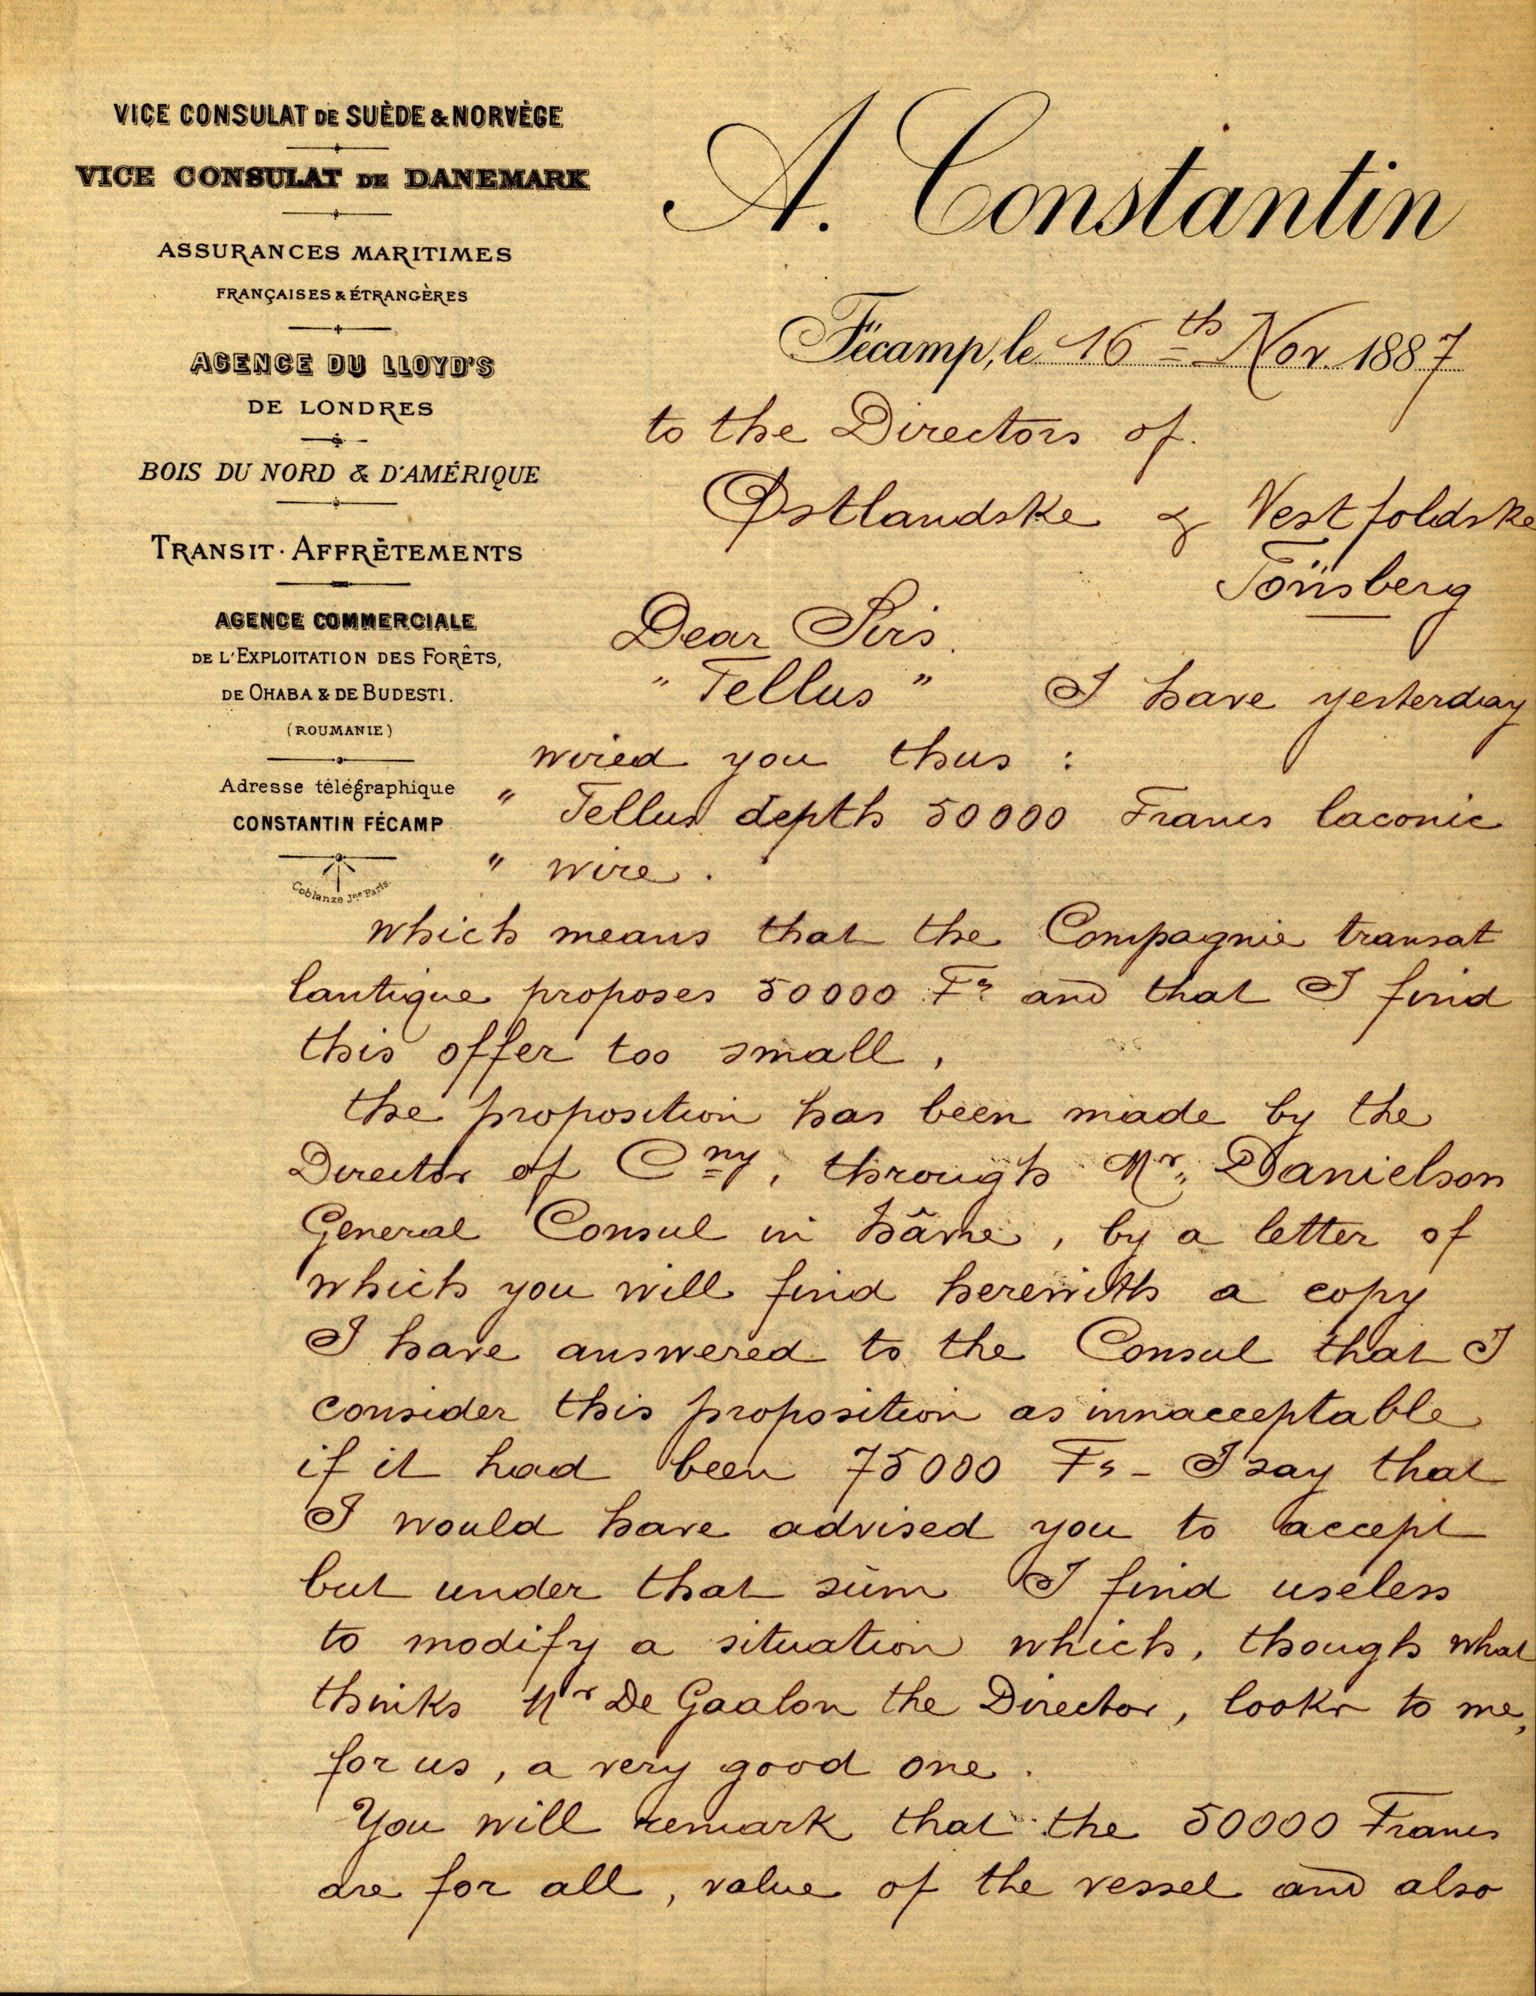 VICE CONSULAT DE SUÈDE & NORVÈGE
VICE CONSULAT DE DANEMARK
ASSURANCES MARITIMES
FRANÇAISES & ÉTRANGÈRES
AGENCE DU LLOYD'S
DE LONDRES
BOIS DU NORD & D'AMÉRIQUE
TRANSIT · AFFRÈTEMENTS
AGENCE COMMERCIALE
DE L'EXPLOITATION DES FORÊTS,
DE OHABA & DE BUDESTI.
(ROUMANIE)
Adresse télégraphique
CONSTANTIN FÉCAMP
Coblanze Jne Paris.
A. Constantin
Fécamp, le 16th Nov. 1887
to the Directors of.
Østlandske & Vestfoldske
Tönsberg
Dear Sirs.
" Tellus " I have yesterday
wired you thus :
" Tellus depth 50000 Francs laconic
" wire .
which means that the Compagnie transat
lantique proposes 50000 Fs and that I find
this offer too small,
the proposition has been made by the
Director of Cny, through Mr. Danielson
General Consul in hâvre, by a letter of
which you will find herewith a copy
I have answered to the Consul that I
consider this proposition as innacceptable
if it had been 75000 Fs - I say that
I would have advised you to accept
but under that sum I find useless
to modify a situation which, though what
thinks Mr De Gaalon the Director, looks to me,
for us, a very good one .
You will remark that the 50000 Francs
are for all, value of the vessel and also